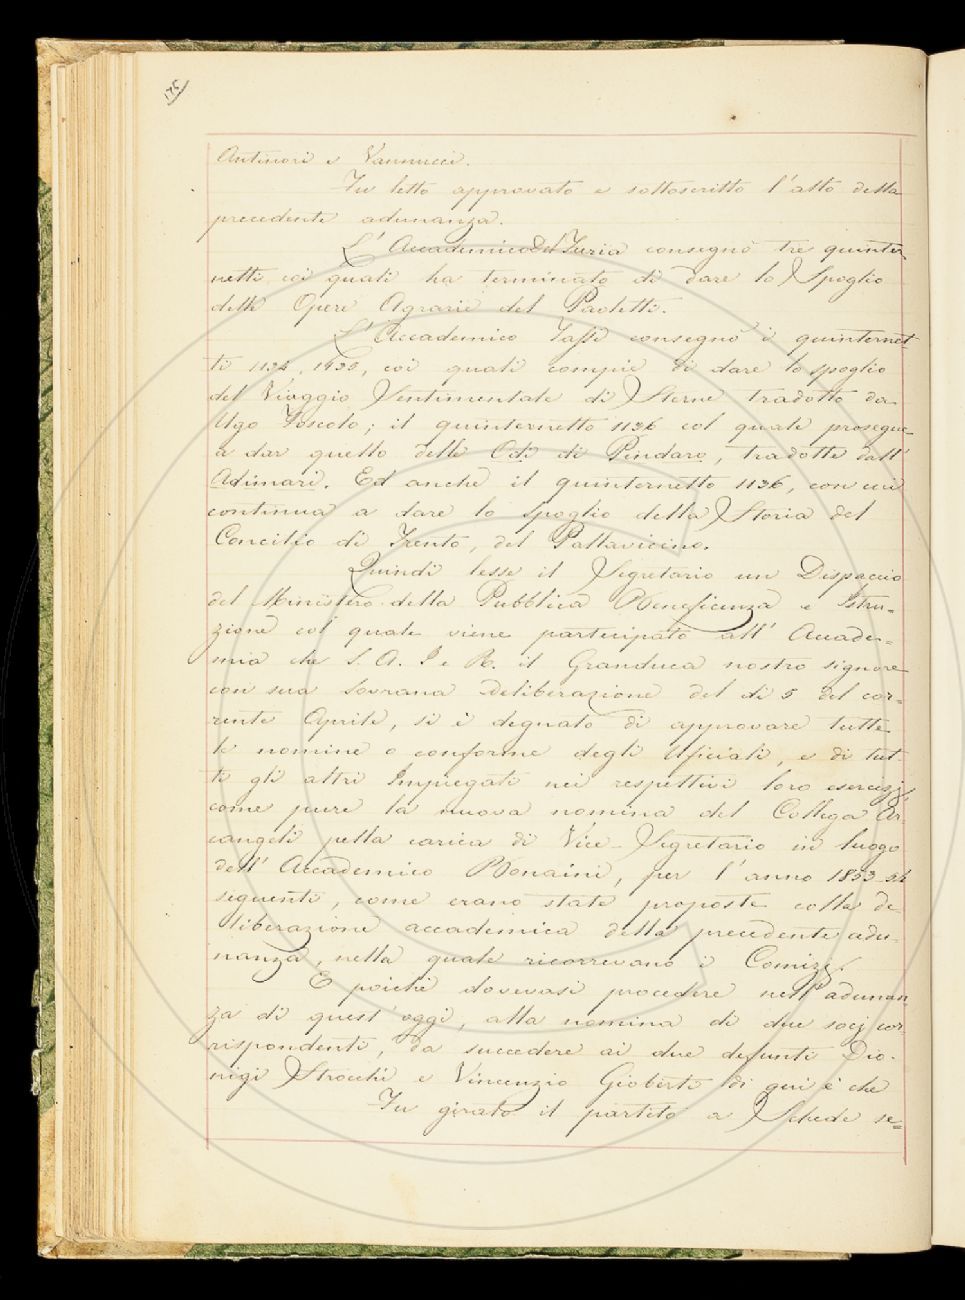 175
Antinori e Vannucci.
Fu letto approvato e sottoscritto l'atto della
precedente adunanza.
L'Accademico Del Furia consegnò tre quinter-
netti coi quali ha terminato di dare lo Spoglio
delle Opere Agrarie del Paoletti.
L'Accademico Tassi consegnò i quinternet-
ti coi quali compie di dare lo spoglio
del Viaggio Sentimentale di Sterne tradotto da
Ugo Foscolo; il quinternetto 1136 col quale prosegue
a dar quello delle Odi di Pindaro, tradotte dall'
Adimari. Ed anche il quinternetto 1136, con cui
continua a dare lo spoglio della Storia del
Concilio di Trento, del Pallavicino.
Quindi lesse il Segretario un Dispaccio
del Ministero della Pubblica Beneficenza e Istru-
zione col quale viene partecipato all' Accade-
mia che S. A. I e R. il Granduca nostro signore
con sua Sovrana Deliberazione del dì 5 del cor-
rente Aprile, si è degnato di approvare tutte
le nomine o conferme degli Ufficiali, e di tut-
ti gli altri Impiegati nei respettivi loro esercizj
come pure la nuova nomina del Collega Ar-
cangeli nella carica di Vice-Segretario in luogo
dell' Accademico Bonaini, per l'anno 1853-54
seguente, come erano state proposte colla de-
liberazione accademica della precedente adu-
nanza, nella quale ricorrevano i Comizj.
E poichè dovevasi procedere nell'adunan
za di quest'oggi, alla nomina di due socj cor
rispondenti, da succedere ai due defunti Dio-
nigi Strocchi e Vincenzio Gioberti di qui è che
Fu girato il partito a Schede se-